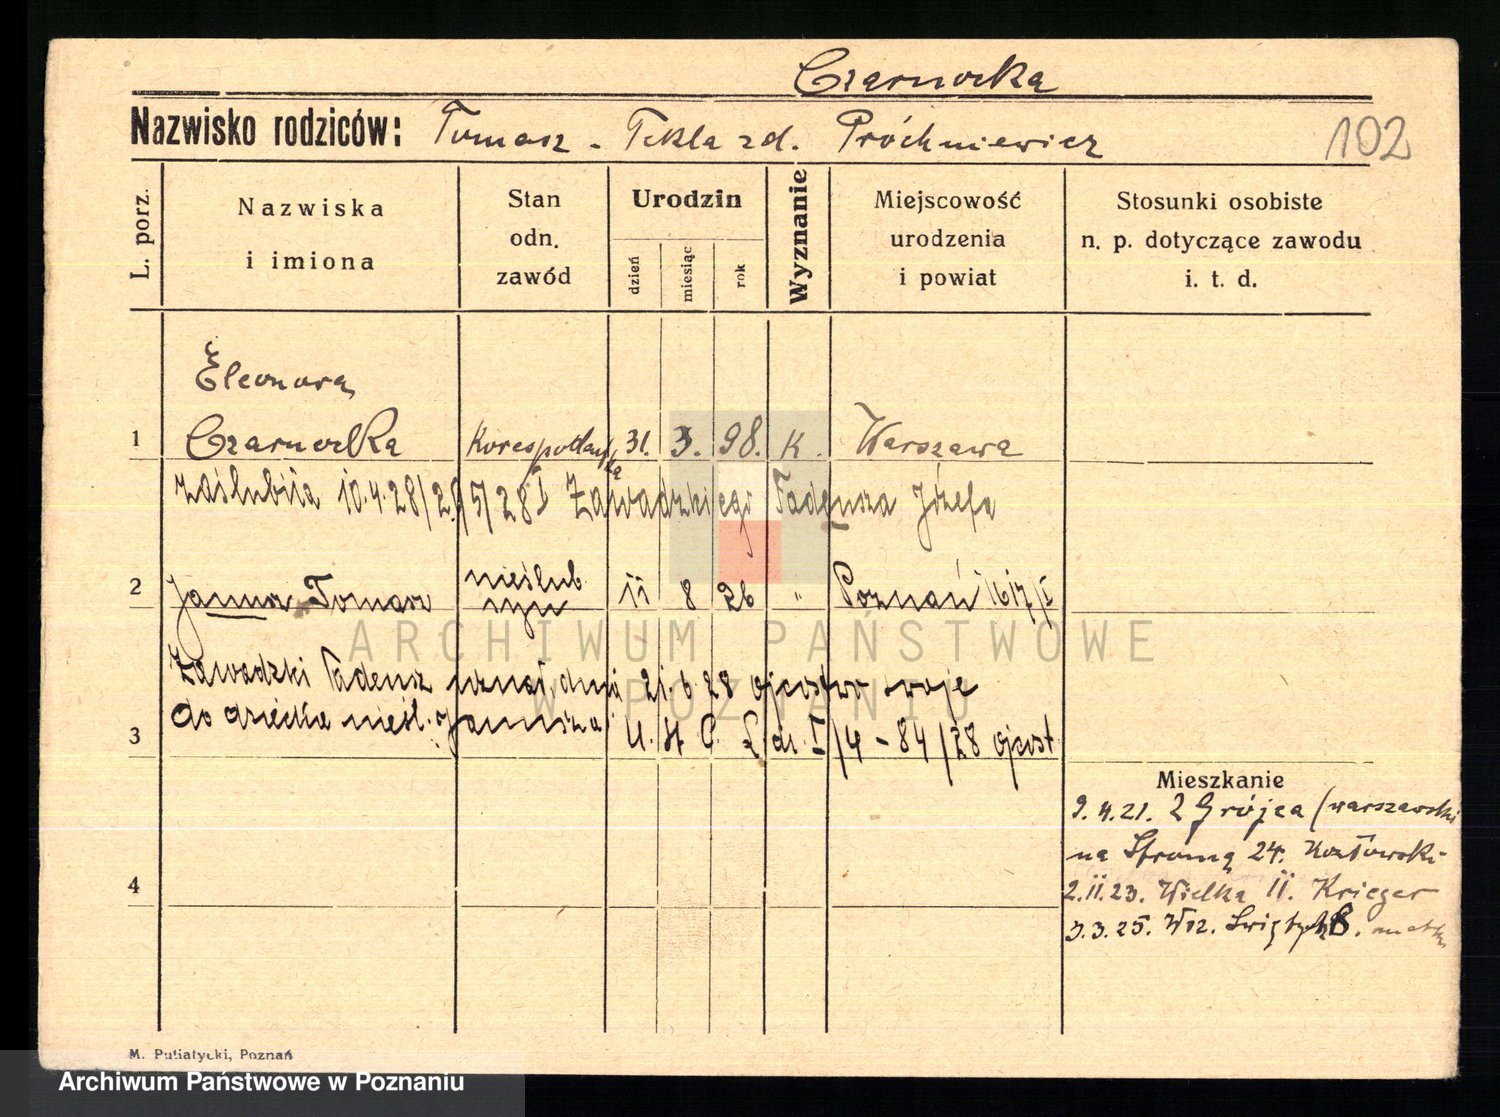 Czarnocka
Nazwisko rodziców: Tomasz - Tekla zd. Próchniewicz
102
L. porz.
Nazwiska
i imiona
Stan
odn.
zawód
Urodzin
dzień
miesiąc
rok
Wyznanie
Miejscowość
urodzenia
i powiat
Stosunki osobiste
n. p. dotyczące zawodu
i. t. d.
Eleonora
1 Czarnocka 31. 3. 98. K. Warszawa
zaślubiła 10.4.28 /28 I Zawadzkiego Tadeusza Józefa
nieślub.
2 Janusz Tomasz syn 11 8 26 " Poznań 1617/I
Zawadzki Tadeusz uznał dnia 21.6.28 ojcostwo swoje
do dziecka nieśl. Janusza
3 U. St. C. I/4 - 84/28 ojcost
Mieszkanie
9.4.21. Z Grójca (warszawski
na Stromą 24. Kozłowski
4
2.11.23. Wielka 11. Krieger
3.3.25. Wsz. Świętych 8. matka
M. Putiatycki, Poznań
ARCHIWUM PAŃSTWOWE
W POZNANIU
Archiwum Państwowe w Poznaniu